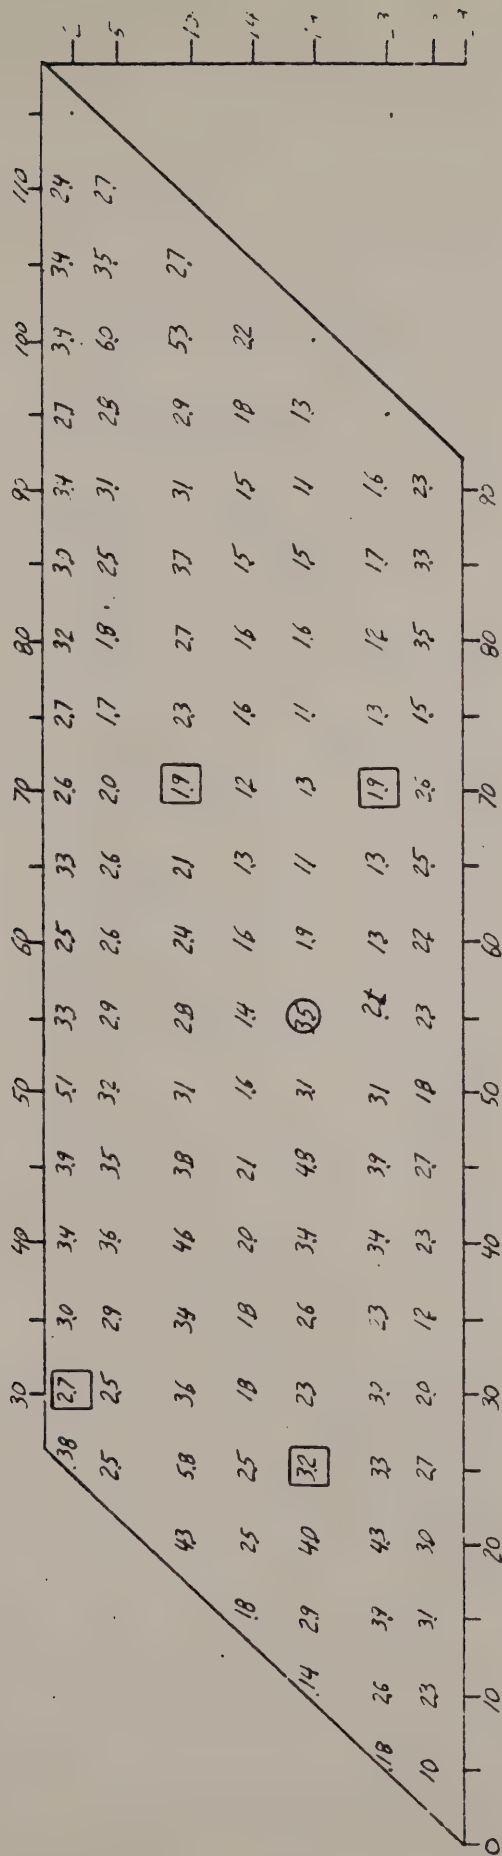 30 40 50 60 70 80 90 100 110
.38 2.7 3.0 3.4 3.9 5.1 3.3 2.5 3.3 2.6 2.7 3.2 3.0 3.4 2.7 3.9 3.4 2.4
2.5 2.5 2.9 3.6 3.5 3.2 2.9 2.6 2.6 2.0 1.7 1.8 2.5 3.1 2.8 6.0 3.5 2.7
5
4.3 5.8 3.6 3.4 4.6 3.8 3.1 2.8 2.4 2.1 1.9 2.3 2.7 3.7 3.1 2.9 5.3 2.7
1.8 2.5 2.5 1.8 1.8 2.0 2.1 1.6 1.4 1.6 1.3 1.2 1.6 1.6 1.5 1.5 1.8 2.2
14
.14 2.9 4.0 3.2 2.3 2.6 3.4 4.8 3.1 3.5 1.9 1.1 1.3 1.1 1.6 1.5 1.1 1.3
.18 2.6 3.9 4.3 3.3 3.0 2.3 3.4 3.9 3.1 1.3 1.3 1.9 1.3 1.2 1.7 1.6
10 2.3 3.1 3.0 2.7 2.0 1.2 2.3 2.7 1.8 2.3 2.2 2.5 2.6 1.5 3.5 3.3 2.3
0 10 20 30 40 50 60 70 80 90